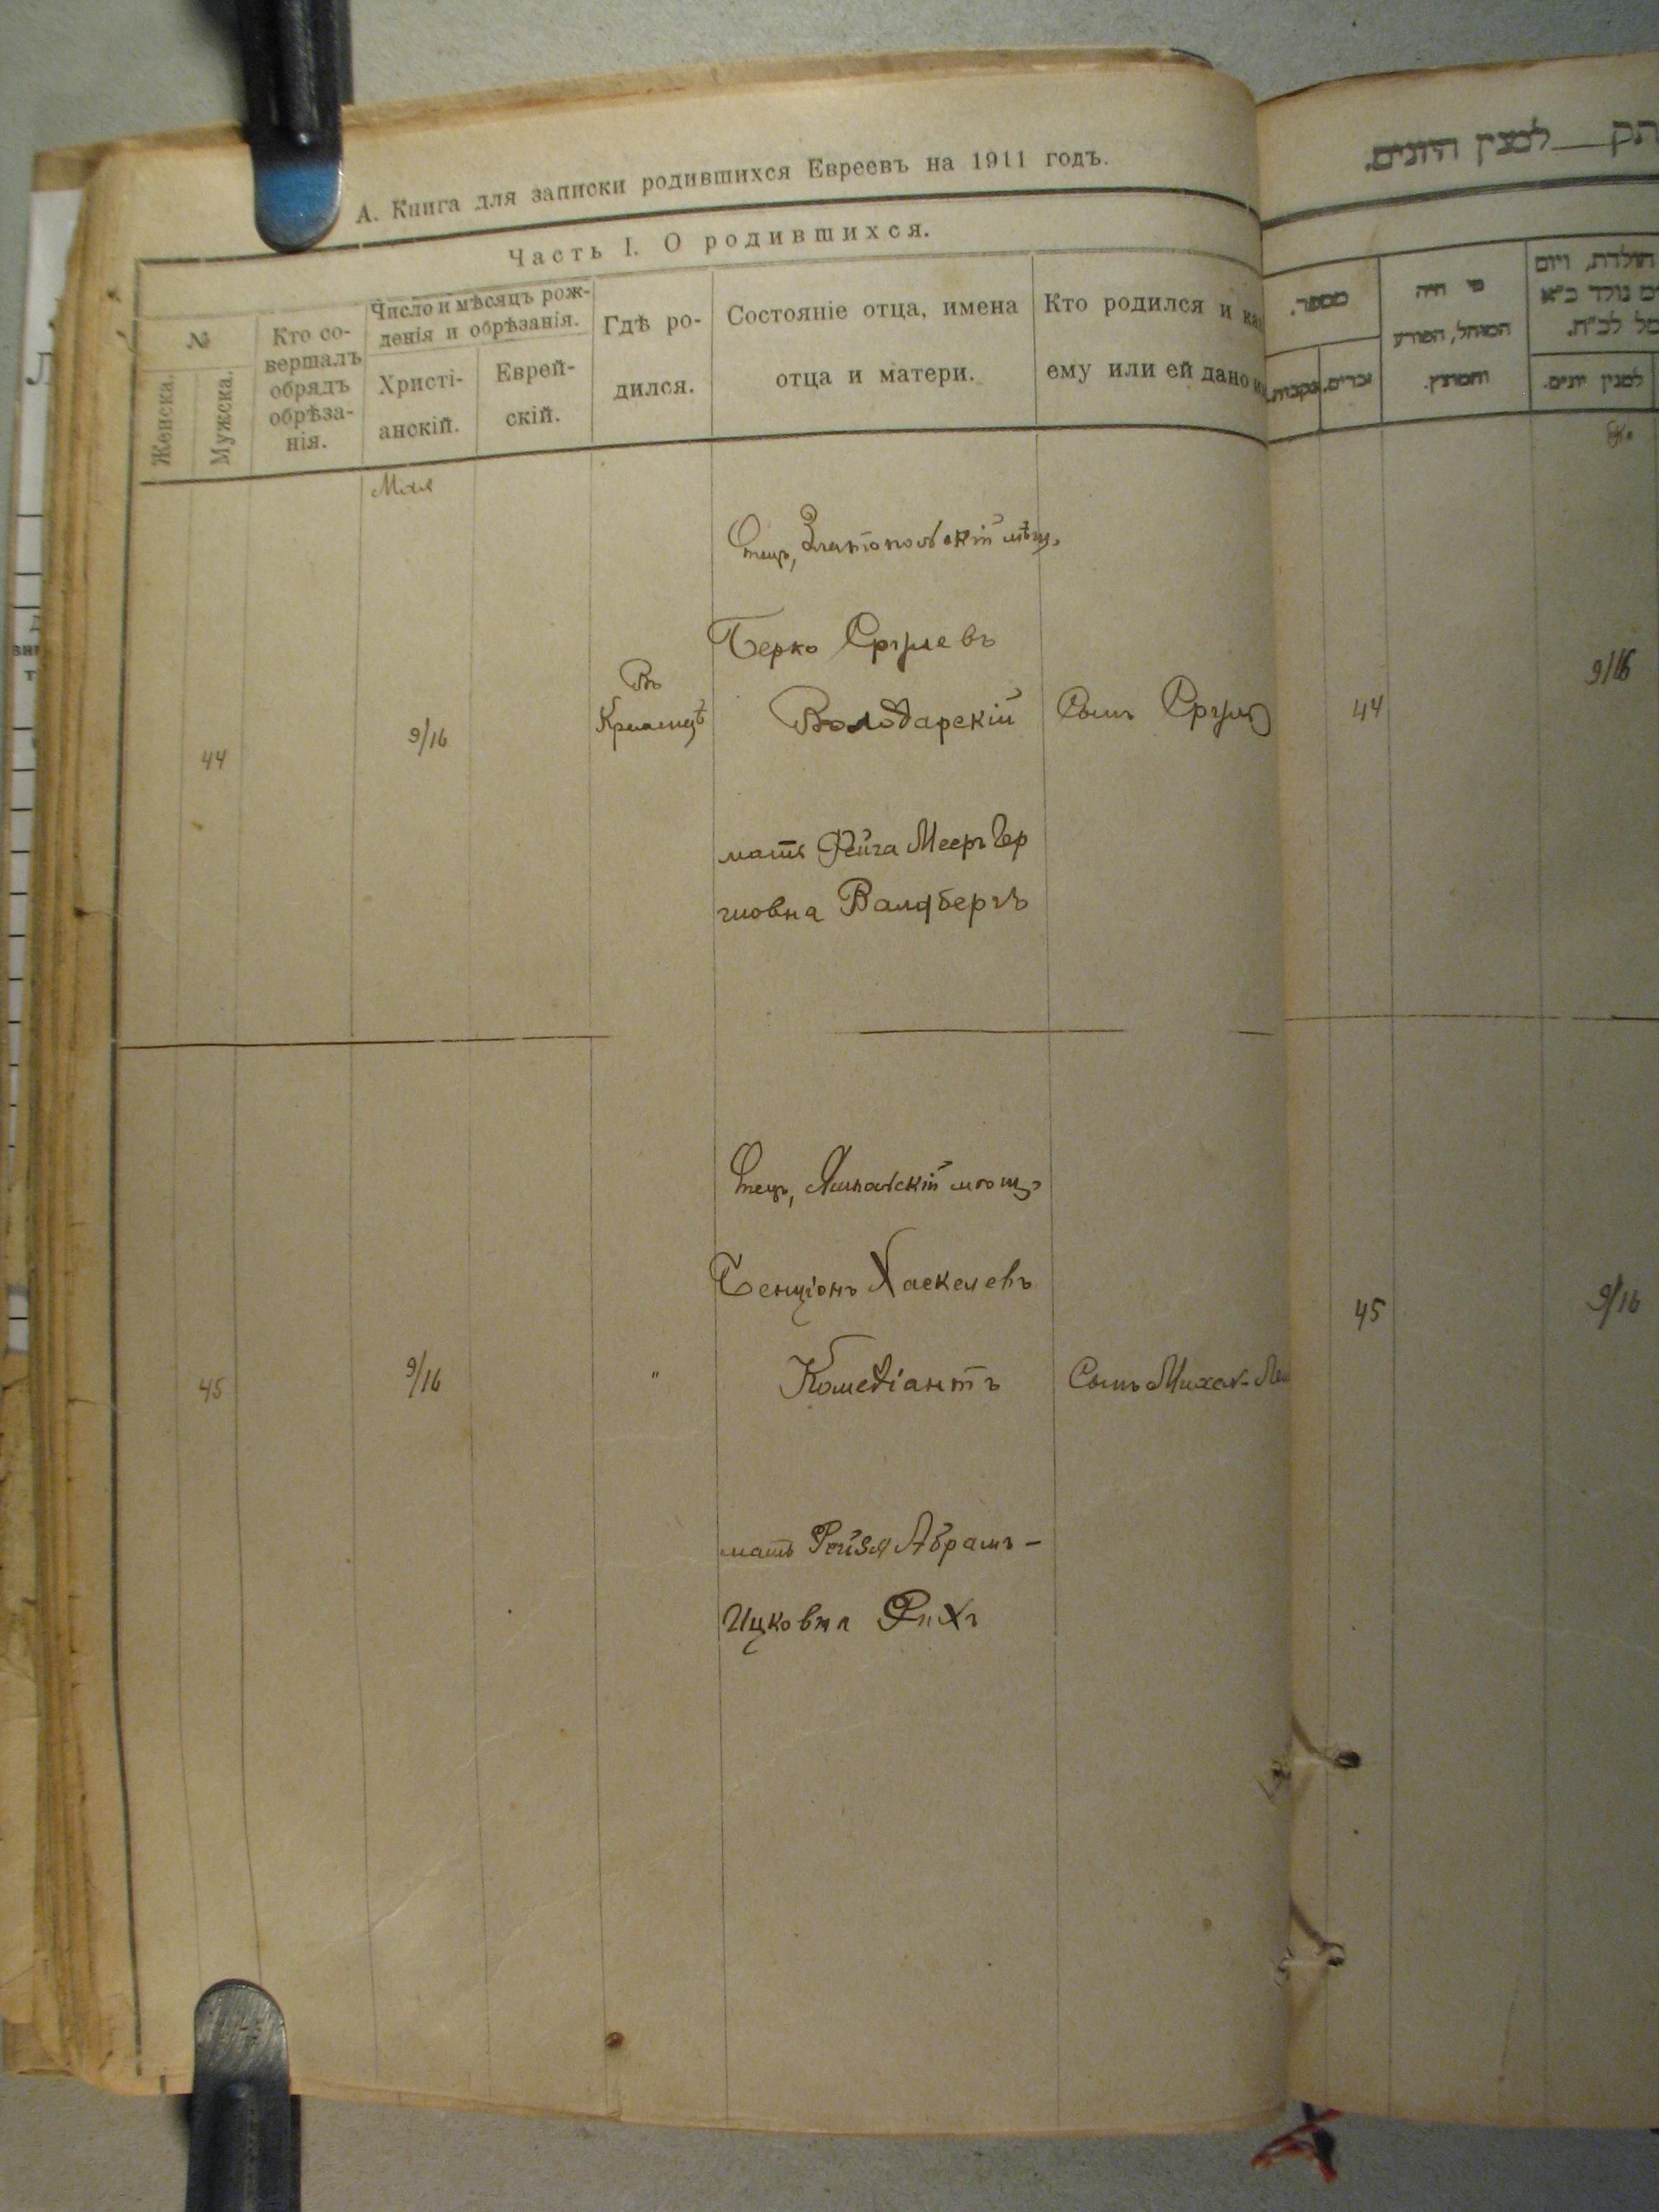 А. Книга для записки родившихся Евреевъ на 1911 годъ.
Часть I. О родившихся.
№
Женска.
Мужска.
Кто со-
вершалъ
обрядъ
обрѣза-
нія.
Число и мѣсяцъ рож-
денія и обрѣзанія.
Христі-
анскій.
Еврей-
скій.
Гдѣ ро-
дился.
Состояніе отца, имена
отца и матери.
Кто родился и
ему или ей дано
Мая
44
9/16
Въ
Кременцѣ
Отецъ, Златопольскій мѣщ.
Берко Сруле въ
Володарскій
мать Фейга Мееръ Бер
говна Валдбергъ
Сынъ Сруль
45
9/16
"
Отецъ, мѣщ.
Бенціонъ Хаскелевъ
Комедіантъ
мать Рейзя Абрамъ-
Ицковна
Сынъ Михел-
לבנין היונים.
מספר.
זכרים.
נקבות.
מי היה
המוהל, הפורע
והמוצץ.
לבנין יונים.
44
9/16
45
9/16